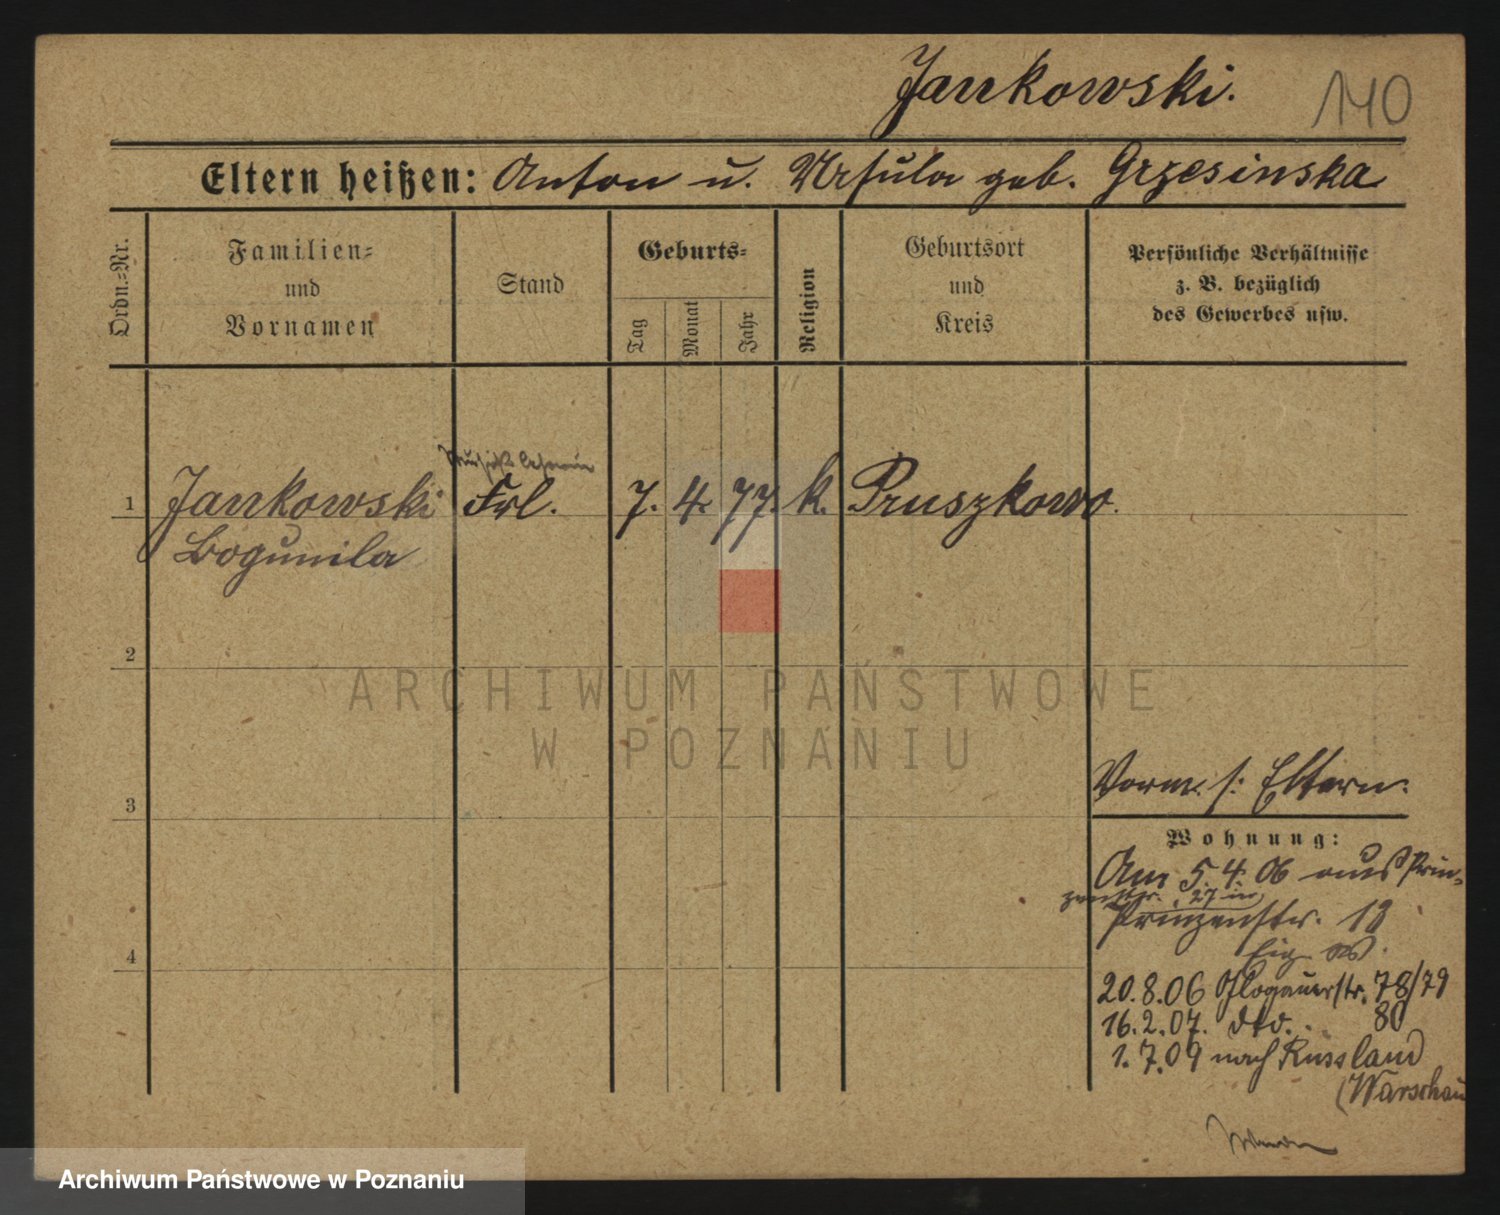 Jankowski.
140
Eltern heißen: Anton u. Ursula geb. Grzesinska
Ordn.-Nr.
Familien-
und
Vornamen
Stand
Geburts-
Tag
Monat
Jahr
Religion
Geburtsort
und
Kreis
Persönliche Verhältnisse
z. B. bezüglich
des Gewerbes usw.
Musiklehrerin
1 Jankowski Frl. 7. 4. 77. k. Pruszkowo.
Bogumila
2
ARCHIWUM PAŃSTWOWE
W POZNANIU
Vorm. s: Eltern.
3
Wohnung:
Am 5.4.06 aus Prin-
zenstr. 27 in
Prinzenstr. 18
4
20.8.06 Glogauerstr. 78/79
16.2.07. dto. 80
1.7.09 nach Russland
(Warschau
Archiwum Państwowe w Poznaniu